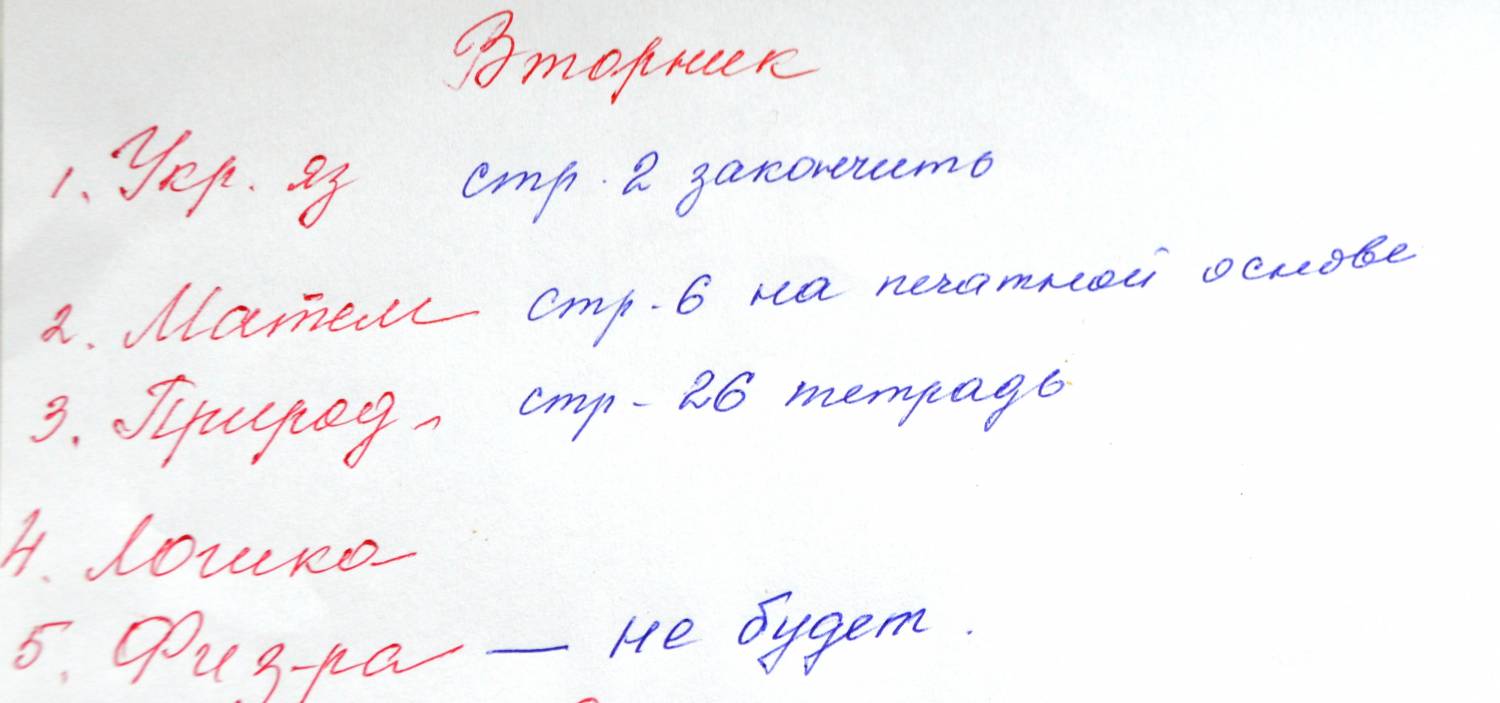 Вторник
1. Укр. яз стр. 2 закончить
2. Матем стр. 6 на печатной основе
3. Природ. стр - 26 тетрадь
4. Логика
5. Физ-ра — не будет.